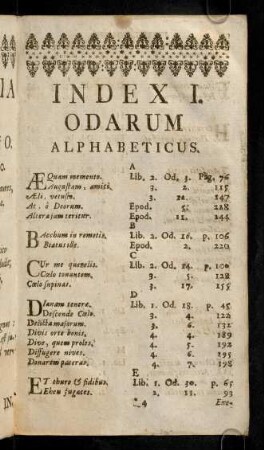 INDEX I.
ODARUM
ALPHABETICUS.
A
ÆQuam memento. Lib. 2. Od. 3. Pag. 76
Angustam, amici. 3. 2. 115
Æli, vetusto. 3. 147
At, ô Deorum. Epod. 5. 228
Altera jam teritur. Epod. 244
B
BAcchum in remotis. Lib. 2. Od. p. 106
Beatus ille. Epod. 2. 220
C
CUr me querelis. Lib. 2. Od. p. 100
Cœlo tonantem. 3. 5. 128
Cœlo supinas. 3. 17. 155
D
DIanam teneræ. Lib. 1. Od. p. 45
Descende Cœlo. 3. 4. 122
Delicta majorum. 3. 6. 132
Divis orte bonis. 4. 4. 189
Dive, quem proles. 4. 5. 192
Diffugere nives. 4. 6. 195
Donarem pateras. 4. 7. 198
E
ET thure & fidibus. Lib. 1. Od. 30. p. 65
Eheu fugaces. 2. 11. 93
*4 Exe-